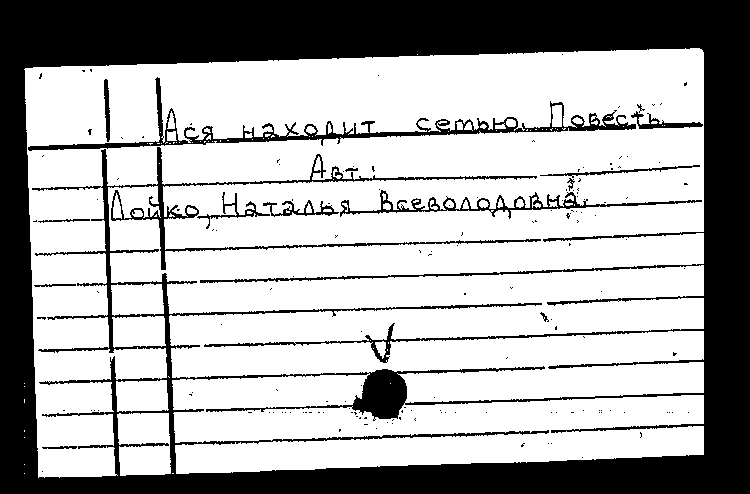 Ася находит семью. Повесть.
Авт.:
Лойко, Наталья Всеволодовна.
V